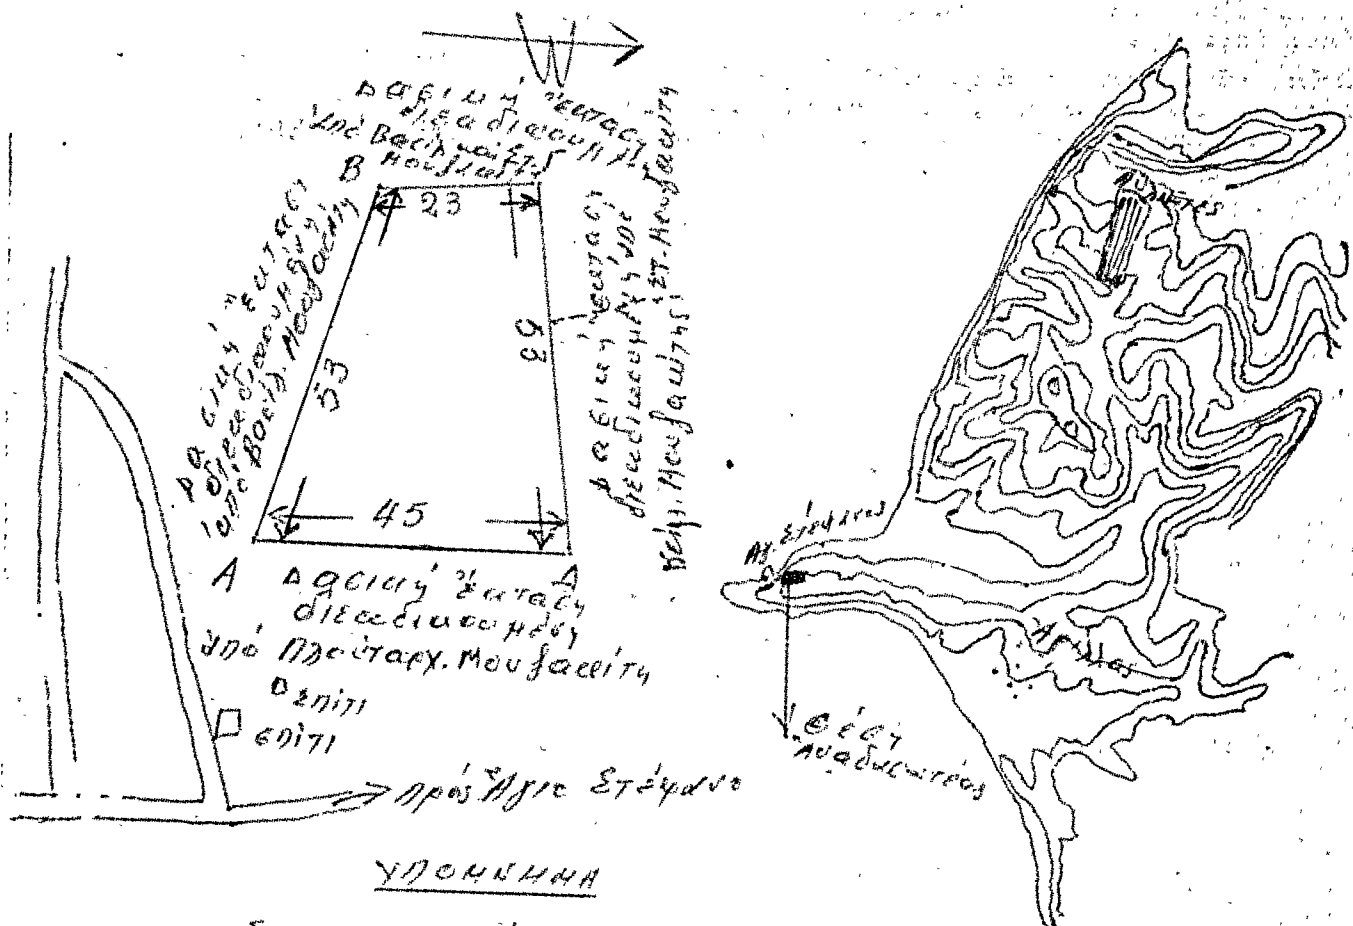 Δασική ἔκταση
διεκδικουμένη
ὑπό Βασιλ. καὶ Στ.
Μουζακίτη
B
23
Δασική ἔκταση
διεκδικουμένη
ὑπό Βασίλ. Μουζακίτη
53
53
Δασική ἔκταση
διεκδικουμένη ὑπό
Μουζακίτης Στ. Μουζακίτη
45
A
Δ
Δασική ἔκταση
διεκδικουμένη
ὑπό Πλούταρχ. Μουζακίτη
σπίτι
σπίτι
πρός Ἅγιο Στέφανο
ΥΠΟΜΝΗΜΑ
Αὐλιῶτες
Αγ. Στέφανος
Αρίλλας
Θέση
Αναδασωτέας